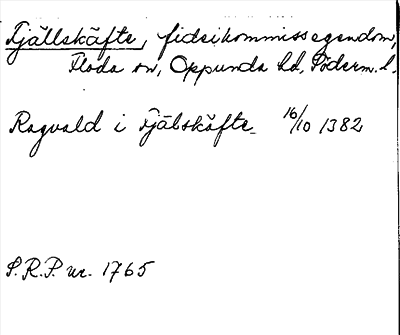 Fjällskäfte, fideikommissegendom,
Floda sn, Oppunda hd, Söderm. l.
Ragvald i Fjälskäfte 16/10 1382
S.R.P. nr. 1765